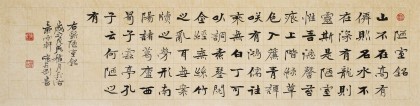 陋室銘
山不在高有
僊則名水不
在深有龍則
靈斯是陋室
惟吾德馨苔
痕上階綠草
色入簾青談
咲有鴻儒往
來無白丁可
以調素琴閱
金經無絲竹
之亂耳無案
牘之勞形南
陽諸葛廬西
蜀子雲亭孔
子云何陋之
有
陋室銘